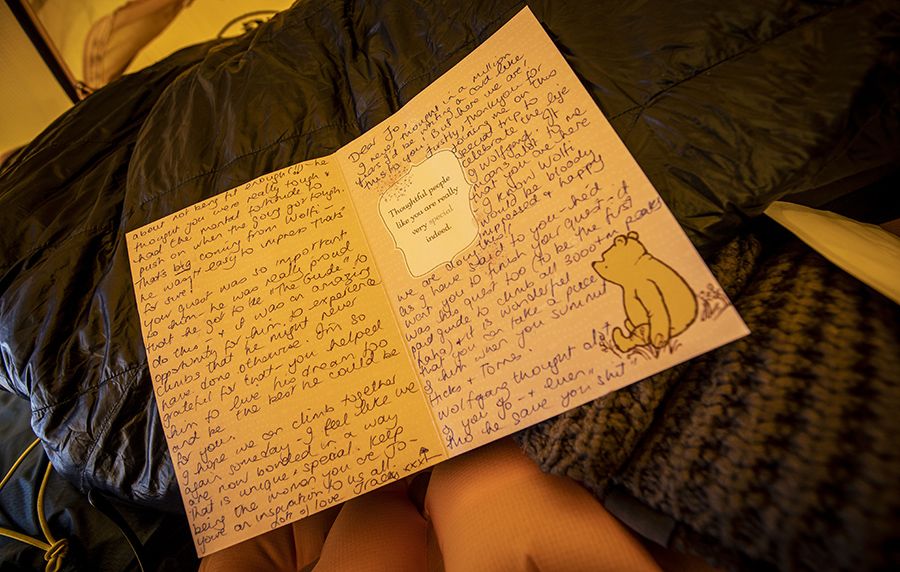 Dear Jo,
I never thought in a million
years I'd be writing a card like
this to you. But here we are!
Truly, thankyou for
joining me on this
special trip to
celebrate the life
of Wolfgang. It
means alot to me
that you are here
& I know Wolfi
would be bloody
impressed & happy
we are doing this!!
As I have said to you - he'd
want you to finish your quest - it
was his quest too (to be the first
paid guide to climb all 3000+m peaks
haha) & it is wonderful
that you can take a piece
of him when you summit
Hicks & Torres.
Wolfgang thought alot
of you Jo - & even
tho he gave you "shit"
Thoughtful people
like you are really
very special
indeed.
about not being fit enough (!!) - he
thought you were really tough &
had the mental fortitude to
push on when the going got tough.
That's big coming from Wolfi -
he wasn't easy to impress that's
for sure!
Your quest was so important
to him - he was really proud
that he got to be "The Guide" to
do this, & it was an amazing
opportunity for him to experience
climbs that he might never
have done otherwise. I'm so
grateful for that - you helped
him to live his dream too
and be the best he could be
for you.
I hope we can climb together
again someday - I feel like we
are now bonded in a way
that is unique & special. Keep
being the woman you are Jo -
you're an inspiration to us all
Lots of love
xxx